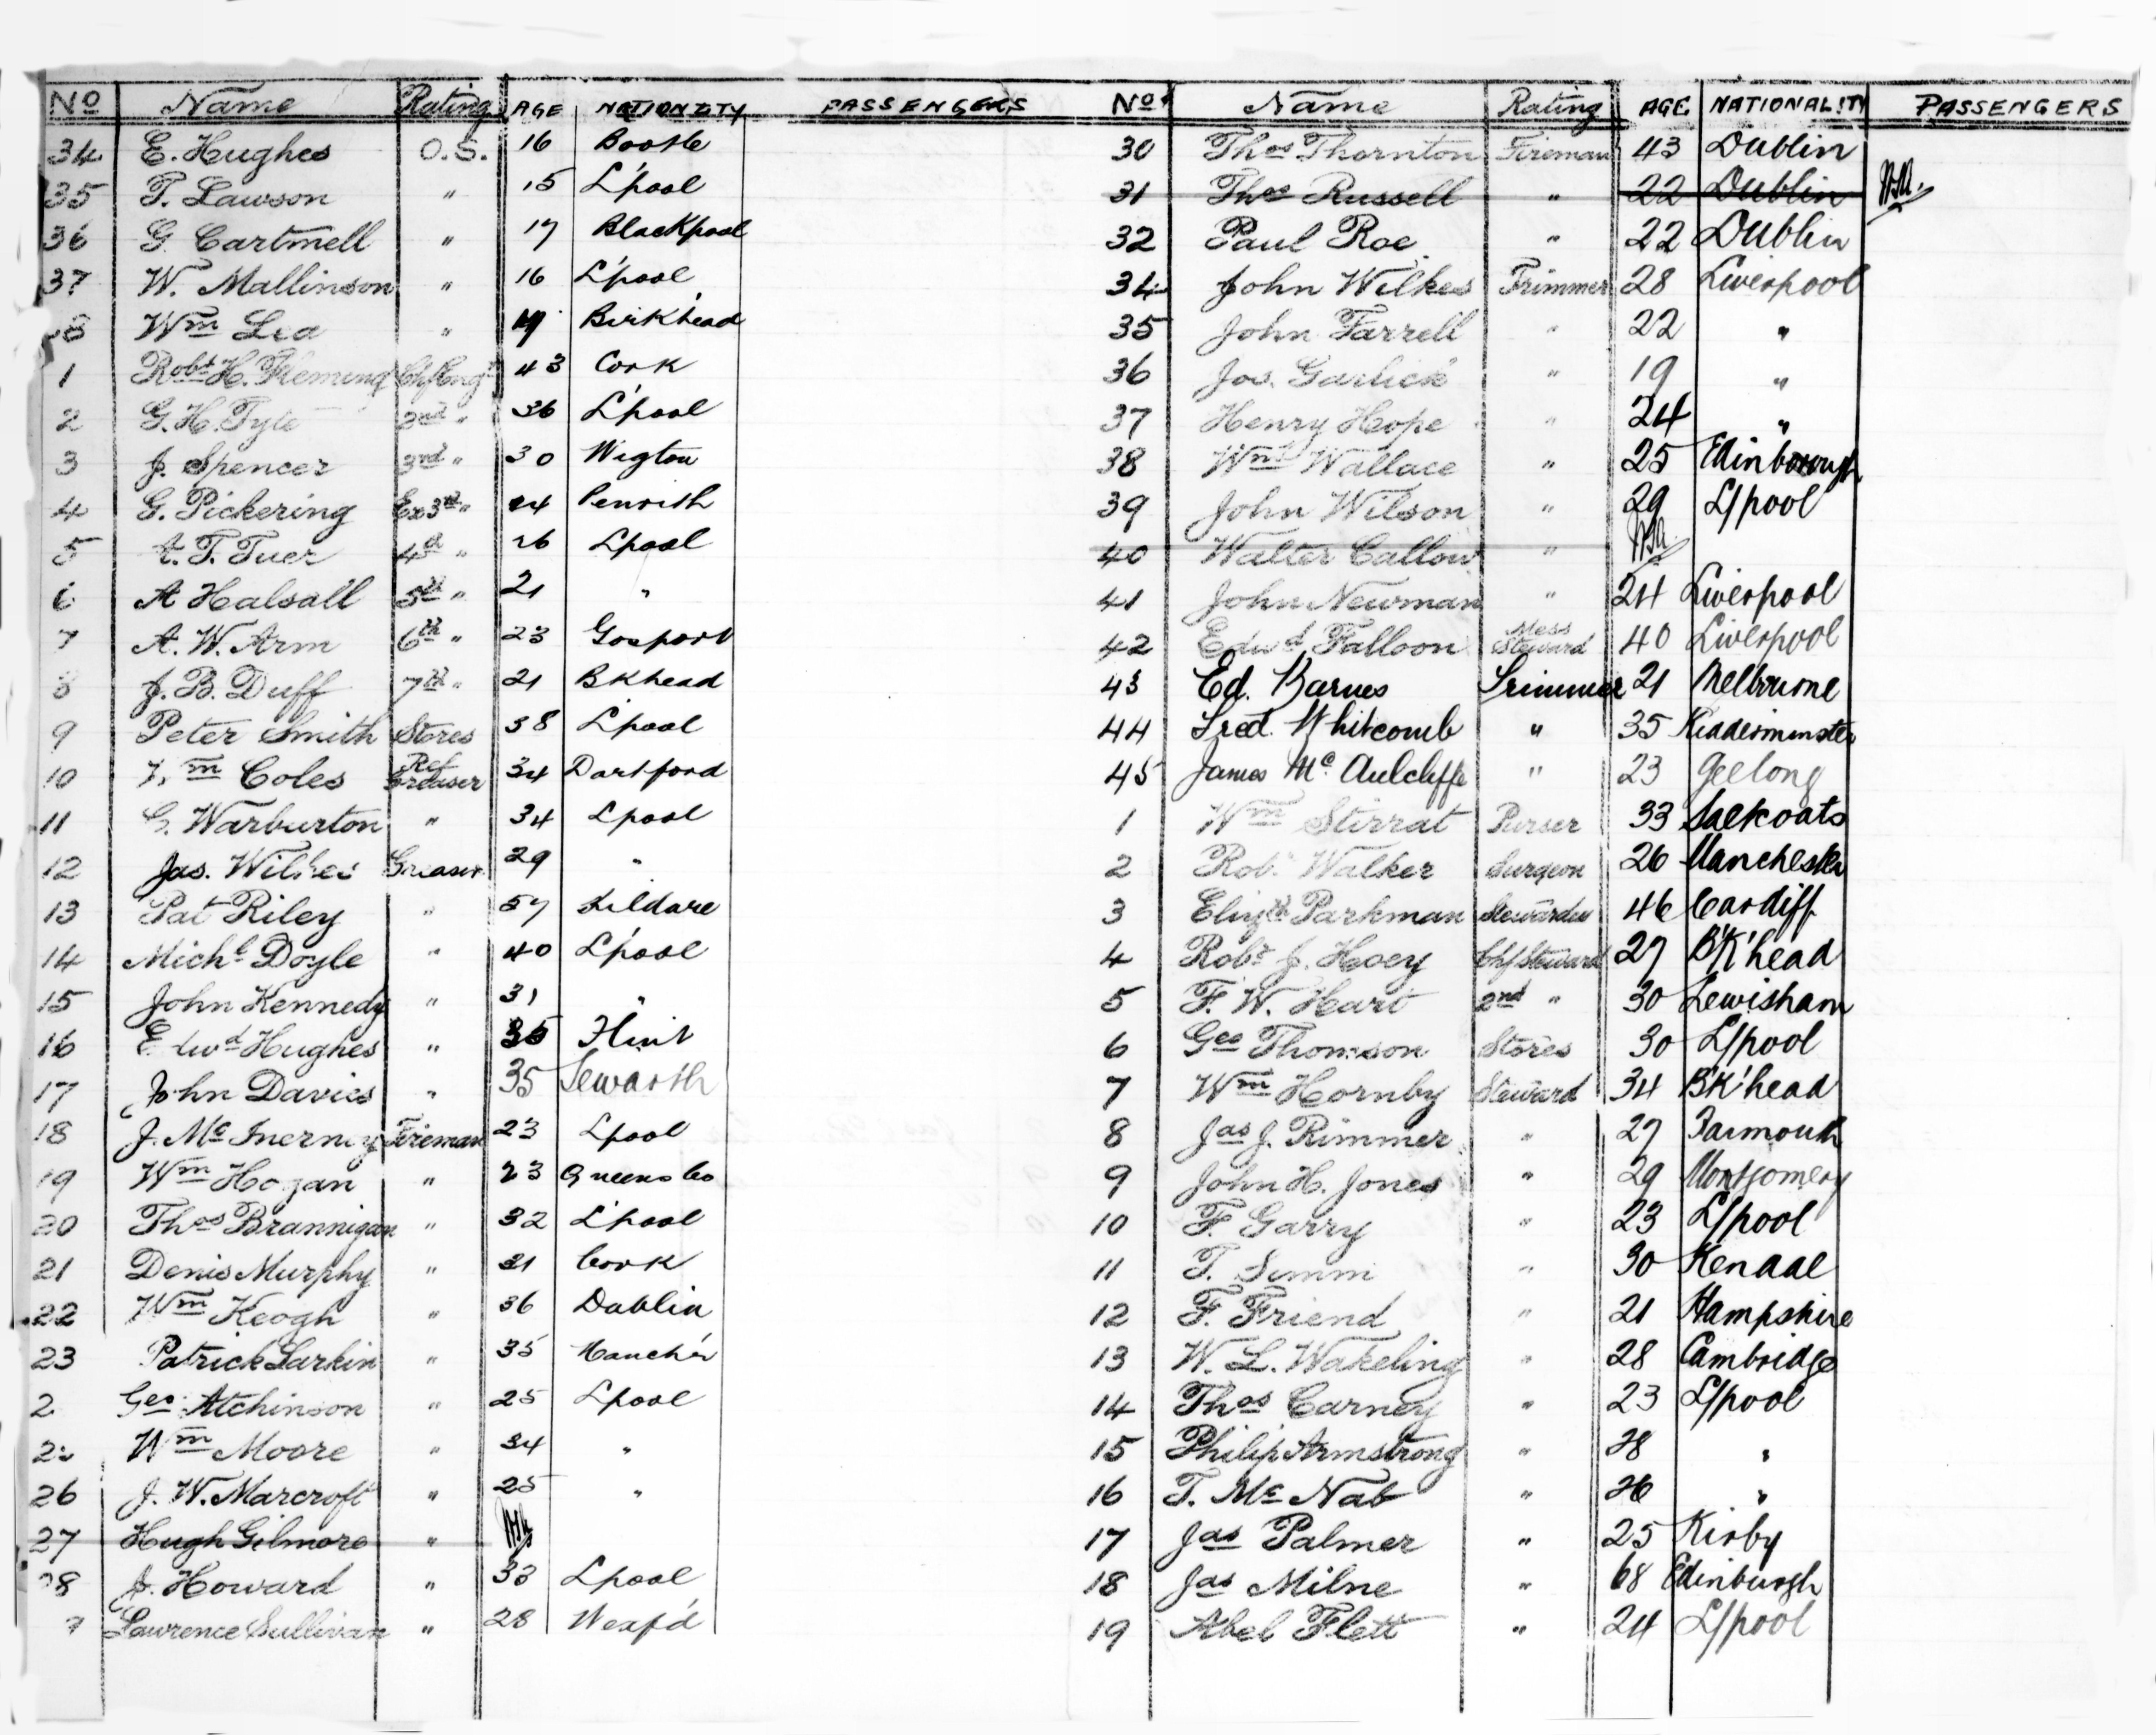 No Name Rating AGE NATIONLTY PASSENGERS
34 E. Hughes O.S. 16 Bootle
35 T. Lawson " 15 L'pool
36 G. Cartmell " 17 Blackpool
37 W. Mallinson " 16 L'pool
8 Wm Lea " 19 Birkhead
1 Robt H. Fleming Chf Engr 43 Cork
2 G. H. Tyte 2nd " 36 L'pool
3 J. Spencer 3rd " 30 Wigton
4 G. Pickering Ex 3rd " 24 Penrith
5 A. T. Tuer 4th " 26 Lpool
6 A Halsall 5th " 21 "
7 A. W. Arm 6th " 23 Gosport
8 J. B. Duff 7th " 21 Bkhead
9 Peter Smith Stores 38 L'pool
10 Wm Coles Ref Greaser 34 Dartford
11 G. Warburton " 34 Lpool
12 Jas. Wilkes Greaser 29 "
13 Pat Riley " 57 Kildare
14 Michl Doyle " 40 L'pool
15 John Kennedy " 31 "
16 Edwd Hughes " 35 Flint
17 John Davies " 35
18 J. Mc Inerney Fireman 23 Lpool
19 Wm Hogan " 23 Queens Co
20 Thos Brannigan " 32 L'pool
21 Denis Murphy " 21 Cork
22 Wm Keogh " 36 Dublin
23 Patrick Larkin " 35 Manch'r
2 Geo. Atchinson " 25 Lpool
2 Wm Moore " 34 "
26 J. W. Marcroft " 25 "
27 Hugh Gilmore "
28 J. Howard " 33 Lpool
Lawrence Sullivan " 28 Wexf'd
No Name Rating AGE NATIONALITY PASSENGERS
30 Thos Thornton Fireman 43 Dublin
31 Thos Russell " 22 Dublin
32 Paul Roe " 22 Dublin
34 John Wilkes Trimmer 28 Liverpool
35 John Farrell " 22 "
36 Jos. Garlick " 19 "
37 Henry Hope " 24 "
38 Wm Wallace " 25 Edinborough
39 John Wilson " 29 L/pool
40 Walter Callow "
41 John Newman " 24 Liverpool
42 Edwd Falloon Mess Steward 40 Liverpool
43 Ed. Barnes Trimmer 21 Melbourne
44 Fred. Whitcomb " 35 Kidderminster
45 James Mc Aulcliffe " 23 Geelong
1 Wm Stirrat Purser 33 Saltcoats
2 Robt Walker Surgeon 26 Manchester
3 Elizth Parkman Stewardess 46 Cardiff
4 Robt J. Hoey Chf Steward 27 B'K'head
5 F. W. Hart 2nd " 30 Lewisham
6 Geo Thomson Stores 30 L/pool
7 Wm Hornby Steward 34 B'K'head
8 Jas J. Rimmer " 27 Yarmouth
9 John H. Jones " 29 Montgomery
10 F. Garry " 23 L/pool
11 T. Simm " 30 Kendal
12 F. Friend " 21 Hampshire
13 W. L. Wakeling " 28 Cambridge
14 Thos Carney " 23 L/pool
15 Philip Armstrong " 28 "
16 T. Mc Nab " 26 "
17 Jas Palmer " 25 Kirby
18 Jas Milne " 68 Edinburgh
19 Abel Flett " 24 L/pool